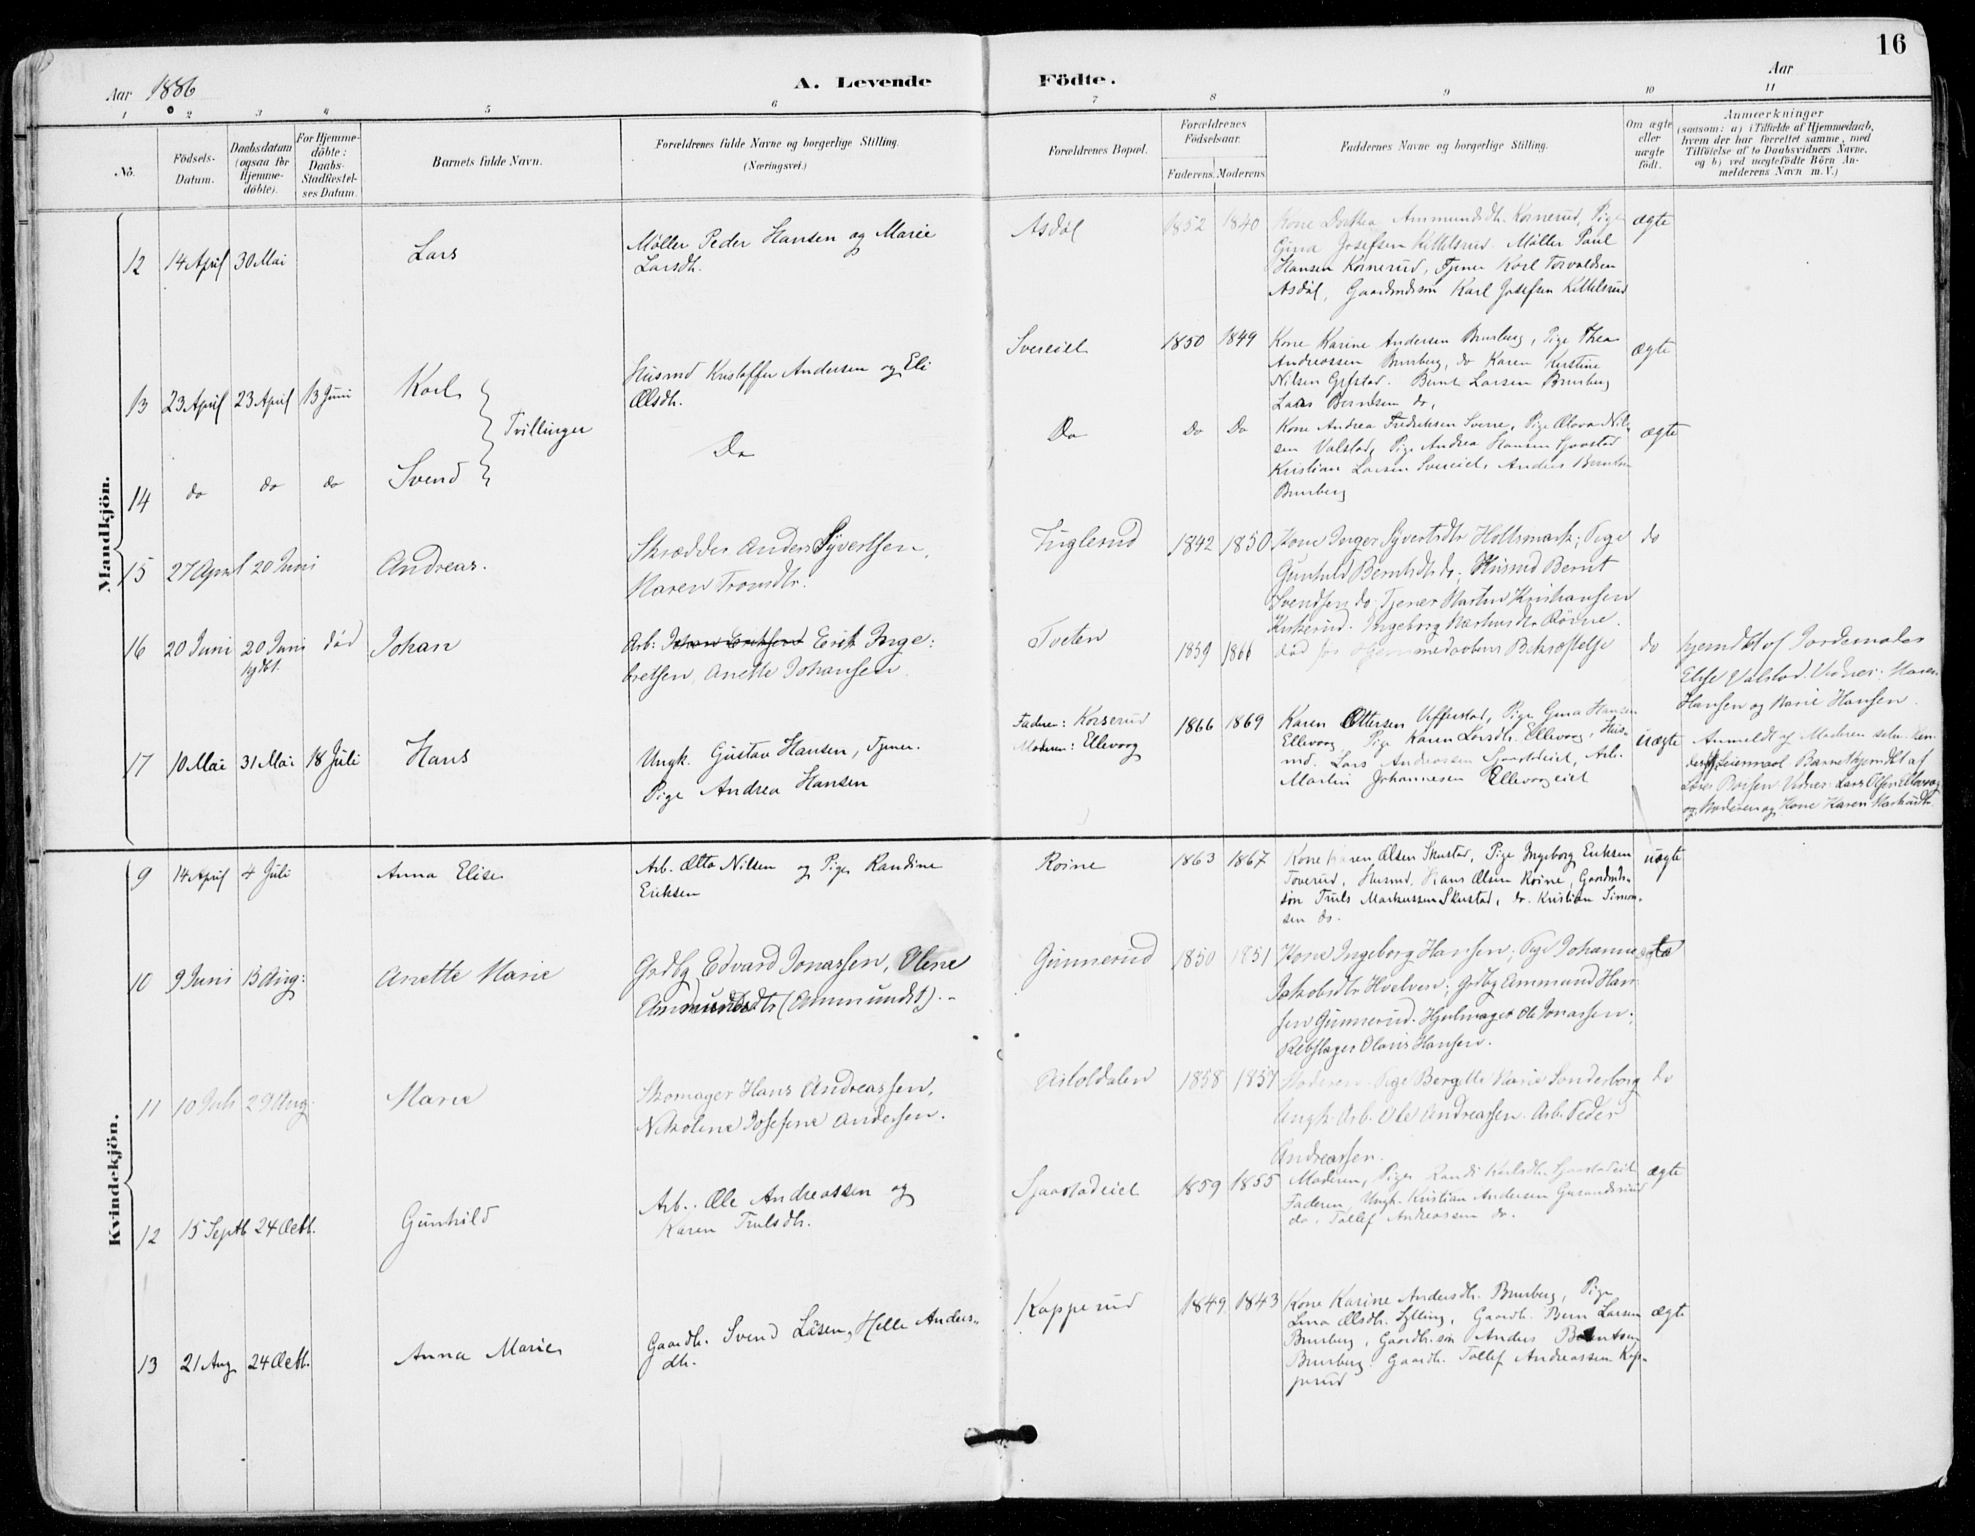 16
Aar 1886
A. Levende Födte.
Aar
1 2 3 4 5 6 7 8 9 10 11
No.
Födsels-
Datum.
Daabsdatum
(ogsaa for
Hjemme-
döbte).
For Hjemme-
döbte:
Daabs-
Stadfæstel-
ses Datum.
Barnets fulde Navn.
Forældrenes fulde Navne og borgerlige Stilling.
(Næringsvei.)
Forældrenes Bopæl.
Forældrenes
Födselsaar.
Faderens. Moderens.
Faddernes Navne og borgerlige Stilling.
Om ægte
eller
uægte
födt.
Anmærkninger
(saasom: a) i Tilfælde af Hjemmedaab,
hvem der har forrettet samme, med
Tilföielse af to Daabsvidners Navne,
og b) ved uægtefödte Börn An-
melderens Navn m. V.)
Mandkjön.
12 14 April 30 Mai
Lars
Møller Peder Hansen og Marie
Larsdh.
Asdøl 1852 1840
Kone Dorthea Ammundsdh. Kornerud, Pige
Gina Josefsen Kittelsrud Møller Paul
Hansen Kornerud, Tjener Karl Torvaldsen
Asdøl, Gaardmdssøn Karl Josefsen Kittelsrud
ægte
13 23 April 23 April 13 Juni
Karl
Tvillinger
Husmd Kristoffer Andersen og Eli
Olsdh.
Svereiet 1850 1849
Kone Karine Andersen Bursberg, Pige Thea
Andreassen Bursberg, do Karen Kirstine
Nilsen Grfstad. Bernt Larsen Bursberg
Lars Berntsen do,
ægte
14 do do do
Svend
Do
Do Do Do
Kone Andrea Fredriksen Sverre, Pige Olava Nil-
sen Valstad, Pige Andrea Hansen Sjaastad
Kristian Larsen Svereiet, Anders Berntsen
Bursberg
ægte
15 27 April 20 Juni
Andreas.
Skrædder Anders Syvertsen,
Maren Tronsdtr.
Fuglerud 1842 1850
Kone Inger Syvertsdtr Holtsmark; Pige
Gunhild Berntsdtr do; Husmd Bernt
Svendsen do; Tjener Martin Kristiansen
Kirkerud. Ingeborg Markusdtr Röine.
do
16 20 Juni 20 Juni
hjdbt.
død
Johan
Arb: Johan Eriksen Erik Inge:
bretsen, Anette Johansen.
Tveten 1859 1866
død før Hjemmedaabens Bekræftelse
do
hjemdbt af Jordemoder
Elise Valstad. Vidner: Maren
Hansen og Marie Hansen.
17 10 Mai 31 Mai 18 Juli
Hans
Ungk. Gustav Hansen, Tjener.
Pige Andrea Hansen
Faderen: Korserud
Moderen: Ellevorg
1866 1869
Karen Ottersen Ufferstad, Pige Gina Hansen
Ellevorg Pige Karen Larsdh. Ellevorg, Hus-
md. Lars Andreassen Sjaastadeiet, Arb.
Martin Johannesen Ellevorgeiet
uægte
Anmeldt af Moderen selv.
Leiermaal Barnet hjemdbt af
Vidner: Lars Olsen Ellevorg
og Moderen og Kone Karen
Kvindekjön.
9 14 April 4 Juli
Anna Elise
Arb. Otto Nilsen og Pige Randine
Eriksen
Roine 1863 1867
Kone Karen Olsen Skustad, Pige Ingeborg Eriksen
Toverud, Husmd. Hans Olsen Roine, Gaardmds-
søn Truls Markussen Skustad, do. Kristian Simon-
sen do.
uægte
10 9 Juni 15 Aug:
Anette Marie
Grdbg Edvard Jonassen, Olene
Ammundsdtr (Ammundst).
Gunnerud 1850 1851
Kone Ingeborg Hansen; Pige Johanne
Jakobsdtr Hvelven; Grdbg Ammund Han-
sen Gunnerud. Hjulmager Ole Jonassen;
Rebslager Olavis Hansen.
ægte
11 10 Juli 29 Aug.
Marie
Skomager Hans Andreassen,
Nikoline Josefine Andersen.
Asloldalen 1858 1857
Moderen. Pige Bergitte Marie Sønderborg
Ungk. Arb. Ole Andreassen. Arb. Peder
Andreassen.
do
12 15 Septb 24 Octb.
Gunhild
Arb. Ole Andreassen og
Karen Trulsdh.
Sjaastadeiet 1859 1855
Moderen, Pige Randi Karlsdh. Sjaastadeiet
Faderen, Ungk. Kristian Andersen Gurandsrud
do. Tollef Andreassen do.
ægte
13 21 Aug 24 Octb.
Anna Marie
Gaardb. Svend Låsen, Helle Anders-
dh.
Kopperud 1849 1843
Kone Karine Andersdh. Bursberg, Pige
Lina Olsdh. Sylling, Gaardb. Bernt Larsen
Bursberg, Gaardb.søn Anders Berntsen
Bursberg Gaardb. Tollef Andreassen Kop-
perud
ægte